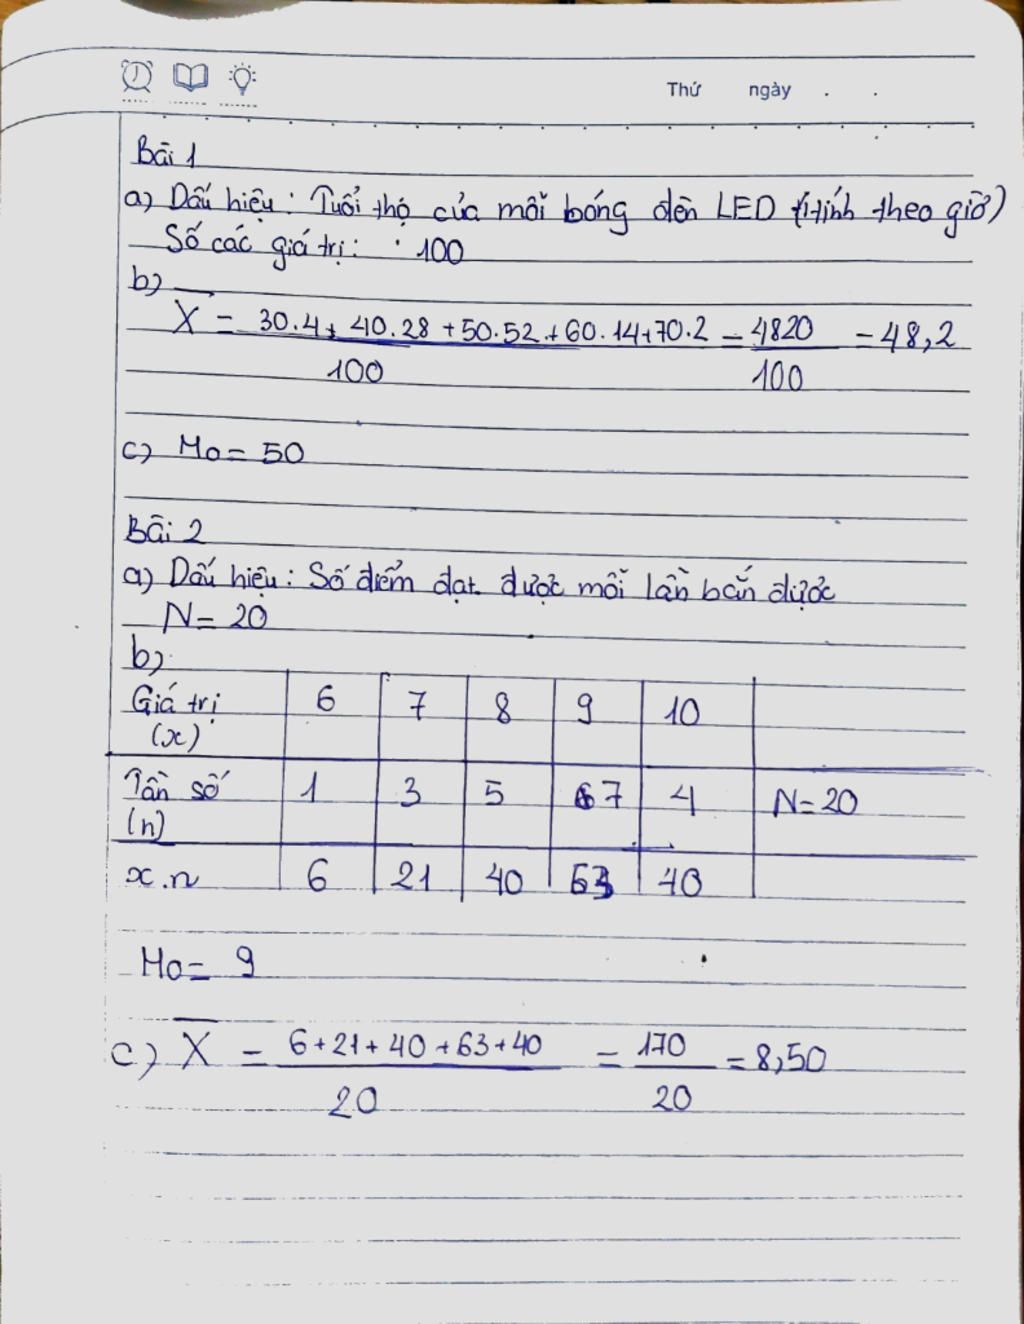 Thứ ngày . .
Bài 1
a) Dấu hiệu : Tuổi thọ của mỗi bóng đèn LED (tính theo giờ)
Số các giá trị : 100
b)
X = 30.4 + 40.28 + 50.52 + 60.14 + 70.2 = 4820 = 48,2
100 100
c) Mo = 50
Bài 2
a) Dấu hiệu : Số điểm đạt được mỗi lần bắn được
N = 20
b)
Giá trị 6 7 8 9 10
(x)
Tần số 1 3 5 7 4 N = 20
(n)
x.n 6 21 40 63 40
Mo = 9
c) X = 6+21+40+63+40 = 170 = 8,50
20 20